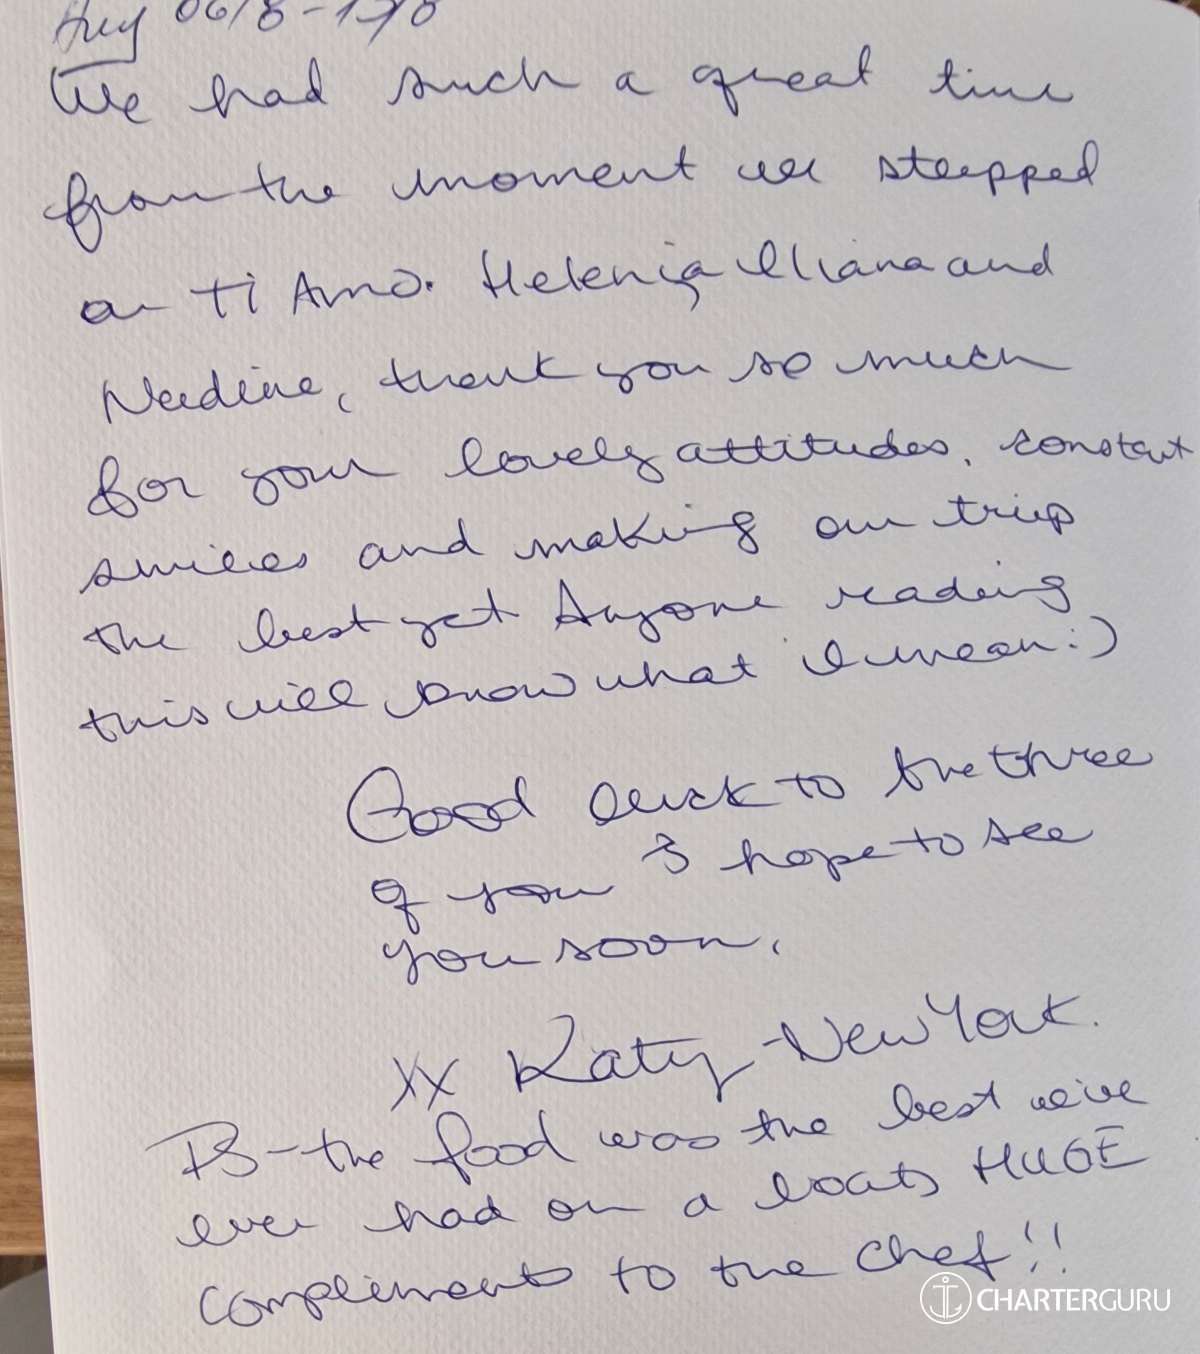 We had such a great time
from the moment we stepped
on Ti Amo. Helenia, Iliana and
Nadine, thank you so much
for your lovely attitudes, constant
smiles and making our trip
the best yet Anyone reading
this will know what I mean :)
Good luck to the three
of you & hope to see
you soon.
XX Katy - New York.
PS - the food was the best we've
ever had on a boat, HUGE
compliments to the chef!!
CHARTERGURU